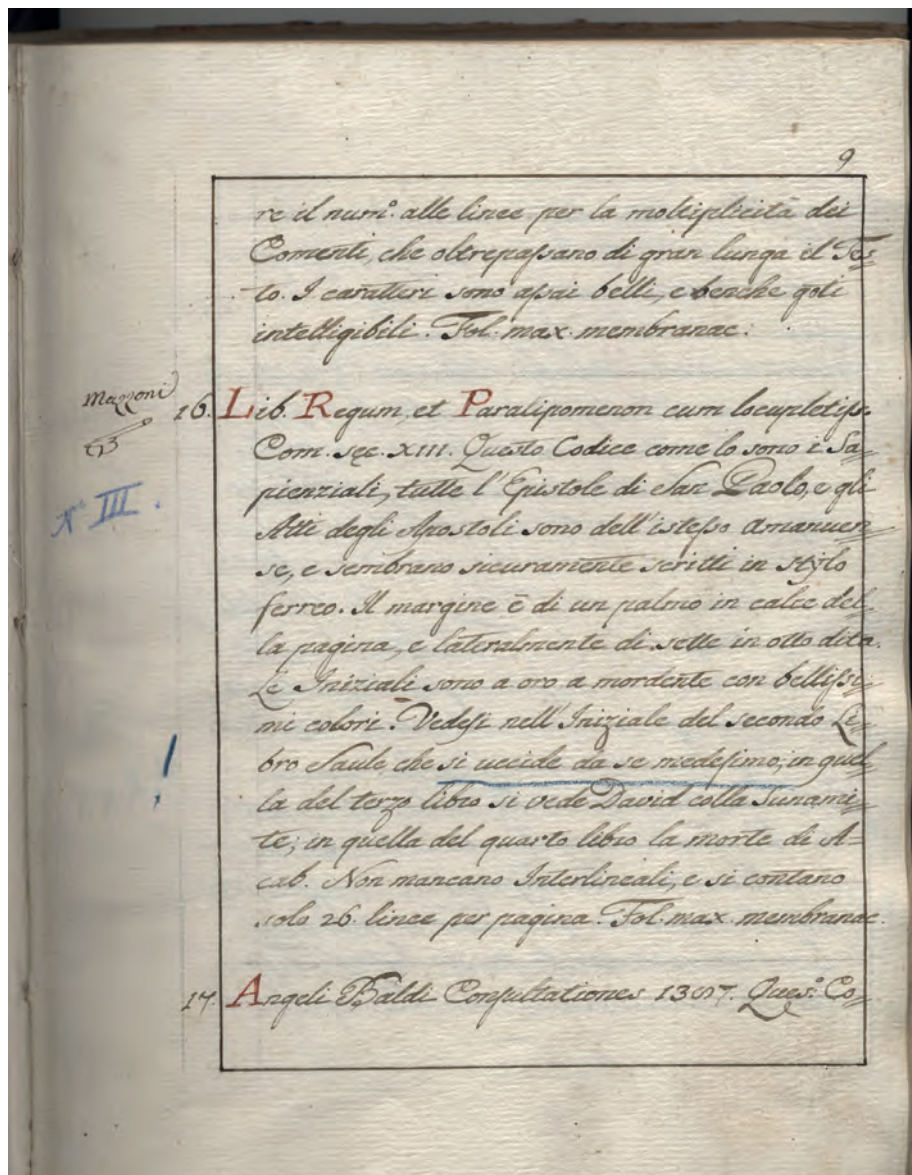 9
re il num.° alle linee per la moltiplicità dei
Comenti, che oltrepassano di gran lunga il Tes=
to. I caratteri sono assai belli, e benche goti
intelligibili. Fol. max. membranac:
Mazzoni
16. Lib. Regum, et Paralipomenon cum locupletiss.
Com. sęc. XIII. Questo Codice come lo sono i Sa=
N° III.
pienziali, tutte l'Epistole di San Paolo, e gli
Atti degli Apostoli sono dell'istesso Amanuen=
se, e sembrano sicuramente scritti in stylo
ferreo. Il margine è di un palmo in calce del=
la pagina, e lateralmente di sette in otto dita.
Le Iniziali sono a oro a mordente con bellissi=
mi colori. Vedesi nell'Iniziale del secondo Li=
!
bro Saule che si uccide da se medesimo; in quel=
la del terzo libro si vede David colla Sunami=
te; in quella del quarto libro la morte di A=
cab. Non mancano Interlineali, e si contano
solo 26. linee per pagina. Fol. max. membranac.
17. Angeli Baldi Consultationes Ques.° Co=